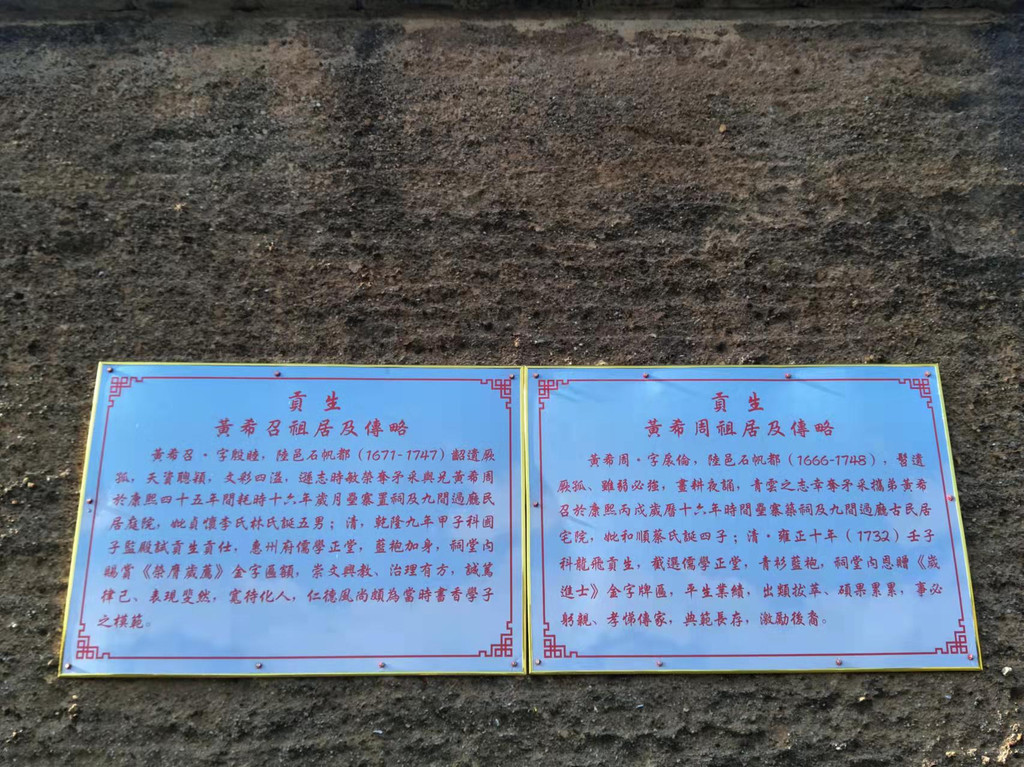 貢生
黃希召祖居及傳略
黃希召·字殷睦，陸邑石帆都（1671-1747）韶遺厥
孤，天資聰穎，文彩四溢，遜志時敏榮奪矛采與兄黃希周
於康熙四十五年間耗時十六年歲月壘寨置祠及九間過廳民
居庭院，妣貞懷李氏林氏誕五男；清，乾隆九年甲子科國
子監殿試貢生貢仕，惠州府儒學正堂，藍袍加身，祠堂內
賜賞《榮膺歲薦》金字匾額，崇文興教、治理有方，誠篤
律己、表現斐然，寬待化人，仁德風尚頗為當時書香學子
之模範。
貢生
黃希周祖居及傳略
黃希周·字展倫，陸邑石帆都（1666-1748），髫遺
厥孤、雖弱必強，晝耕夜誦，青雲之志幸奪矛采攜弟黃希
召於康熙丙戌歲曆十六年時間壘寨築祠及九間過廳古民居
宅院，妣和順蔡氏誕四子；清·雍正十年（1732）壬子
科龍飛貢生，截選儒學正堂，青衫藍袍，祠堂內恩贈《歲
進士》金字牌匾，平生業績，出類拔萃、碩果累累，事必
躬親、孝悌傳家，典範長存，激勵後裔。